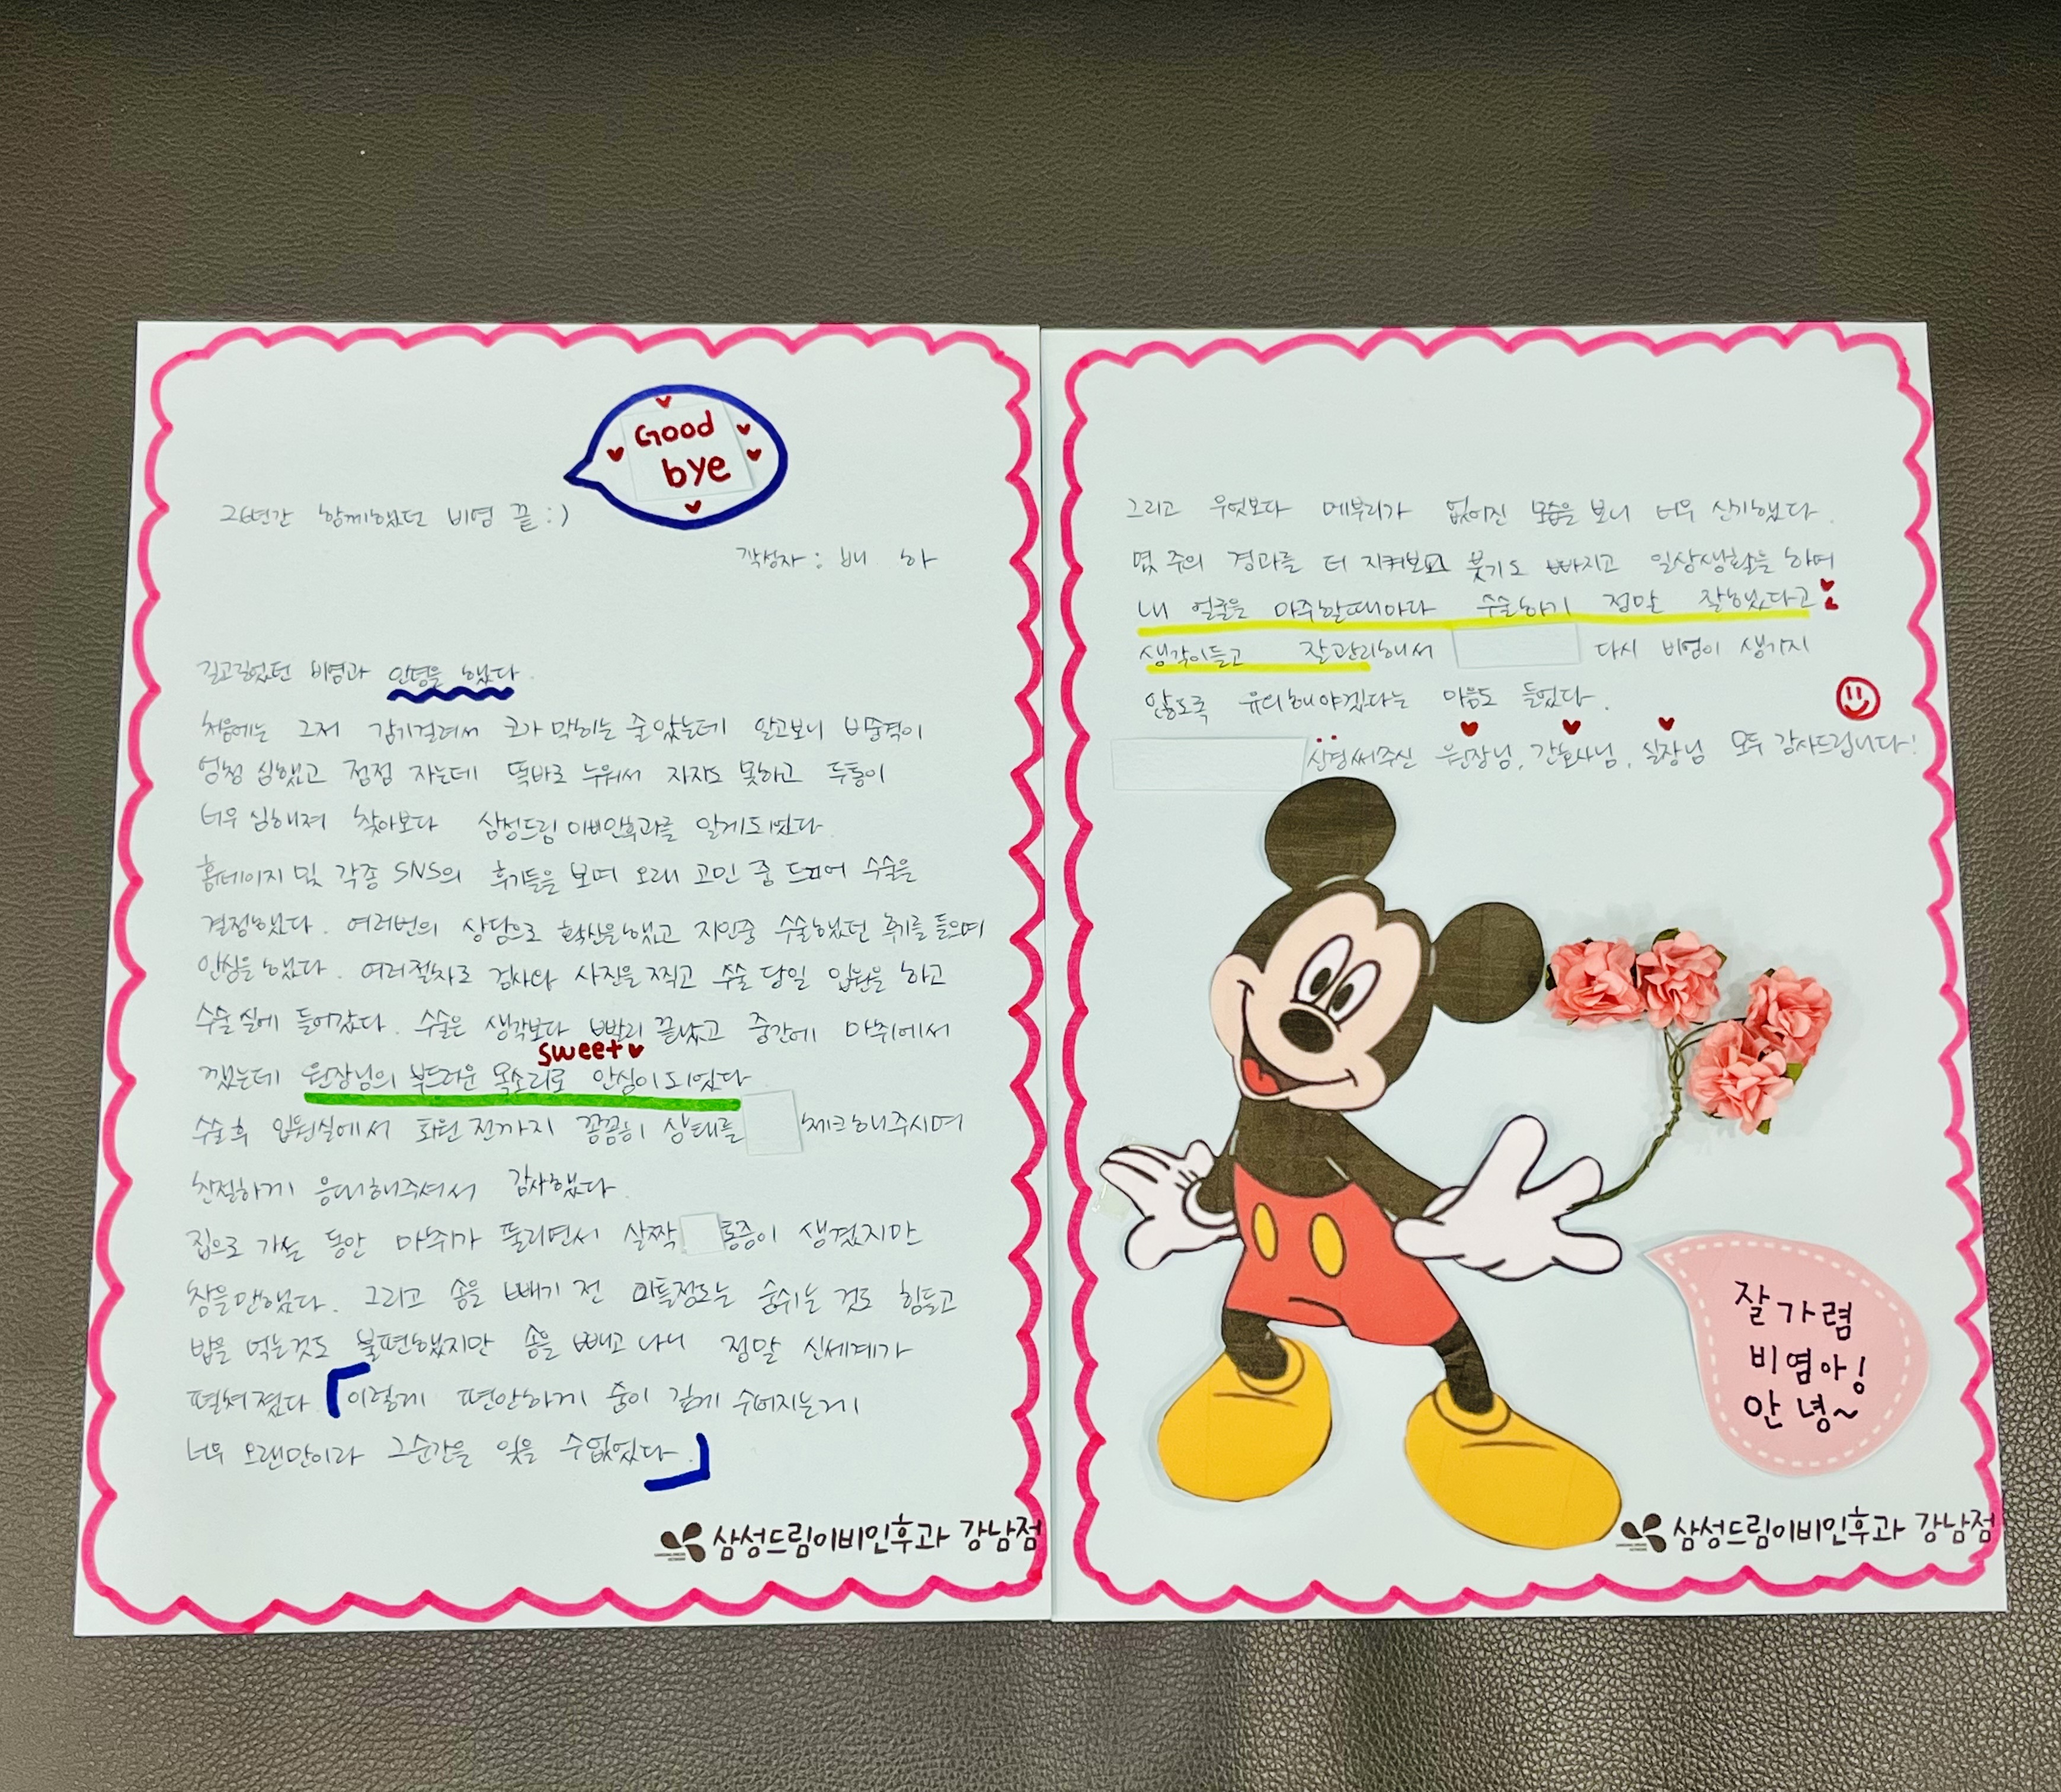 Good
bye
26년간 함께했던 비염 끝 :)
작성자 : 배 하
길고길었던 비염과 안녕을 했다.
처음에는 그저 감기걸려서 코가 막히는 줄 알았는데 알고보니 비중격이
엄청 심했고 점점 자는데 똑바로 누워서 자지도 못하고 두통이
너무 심해져 찾아보다 삼성드림이비인후과를 알게되었다.
홈페이지 및 각종 SNS의 후기들을 보며 오래 고민 중 드디어 수술을
결정했다. 여러번의 상담으로 확신을했고 지인중 수술했던 후기를 들으며
안심을 했다. 여러절차로 검사와 사진을 찍고 수술 당일 입원을 하고
수술실에 들어갔다. 수술은 생각보다 빨리 끝났고 중간에 마취에서
sweet
깼는데 원장님의 부드러운 목소리로 안심이 되었다
수술후 입원실에서 퇴원 전까지 꼼꼼히 상태를 체크해주시며
친절하게 응대해주셔서 감사했다.
집으로 가는 동안 마취가 풀리면서 살짝 통증이 생겼지만
참을만했다. 그리고 솜을 빼기 전 이틀정도는 숨쉬는 것도 힘들고
밥을 먹는것도 불편했지만 솜을 빼고 나니 정말 신세계가
펼쳐졌다 「이렇게 편안하게 숨이 쉬어지는게
너무 오랜만이라 그순간을 잊을 수없었다.」
삼성드림이비인후과 강남점
그리고 무엇보다 메부리가 없어진 모습을 보니 너무 신기했다.
몇 주의 경과를 더 지켜보고 붓기도 빠지고 일상생활을 하며
내 얼굴을 마주할때마다 수술하기 정말 잘했다고
생각이들고 잘관리해서 다시 비염이 생기지
않도록 유의해야겠다는 마음도 들었다.
신경써주신 원장님, 간호사님, 실장님 모두 감사드립니다!
잘가렴
비염아!
안녕~
삼성드림이비인후과 강남점